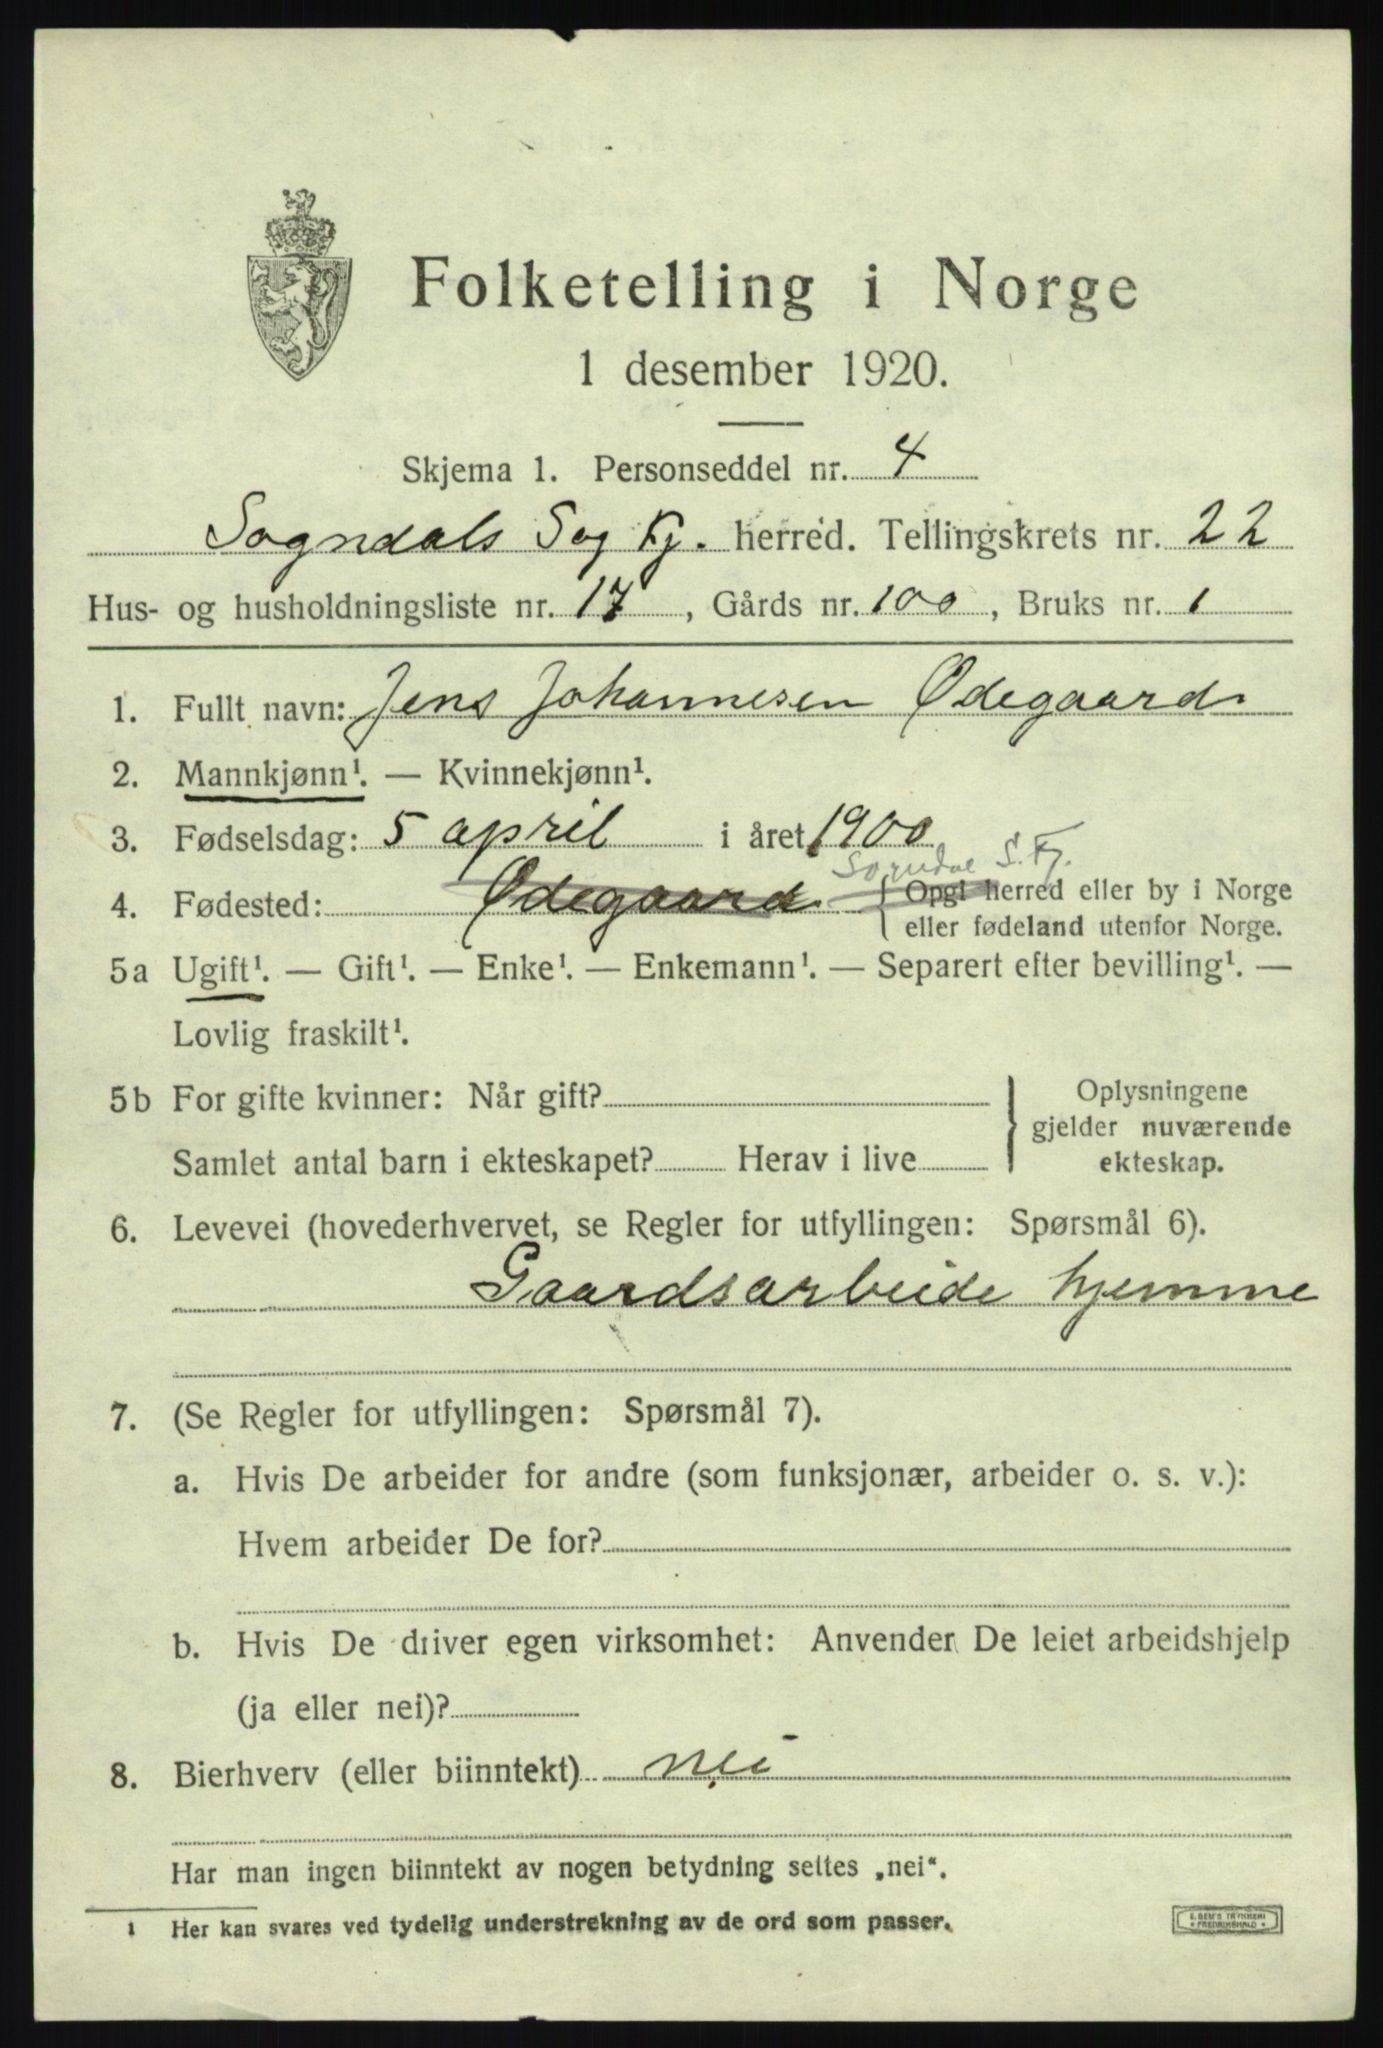 Folketelling i Norge
1 desember 1920.
Skjema 1. Personseddel nr. 4
Sogndals Sog Fj. herred. Tellingskrets nr. 22
Hus- og husholdningsliste nr. 17, Gårds nr. 100, Bruks nr. 1
1. Fullt navn: Jens Johannesen Ødegaard
2. Mannkjønn¹. — Kvinnekjønn¹.
3. Fødselsdag: 5 april i året 1900
Sogndal S. Fj.
4. Fødested: Ødegaard { Opgi herred eller by i Norge
eller fødeland utenfor Norge.
5a Ugift¹. — Gift¹. — Enke¹. — Enkemann¹. — Separert efter bevilling¹. —
Lovlig fraskilt¹.
5b For gifte kvinner: Når gift?
Samlet antal barn i ekteskapet? Herav i live
} Oplysningene
gjelder nuværende
ekteskap.
6. Levevei (hovederhvervet, se Regler for utfyllingen: Spørsmål 6).
Gaardsarbeide hjemme
7. (Se Regler for utfyllingen: Spørsmål 7).
a. Hvis De arbeider for andre (som funksjonær, arbeider o. s. v.):
Hvem arbeider De for?
b. Hvis De driver egen virksomhet: Anvender De leiet arbeidshjelp
(ja eller nei)?
8. Bierhverv (eller biinntekt) nei
Har man ingen biinntekt av nogen betydning settes „nei“.
1 Her kan svares ved tydelig understrekning av de ord som passer.
E. SEM'S TRYKKERI
• FREDRIKSHALD •